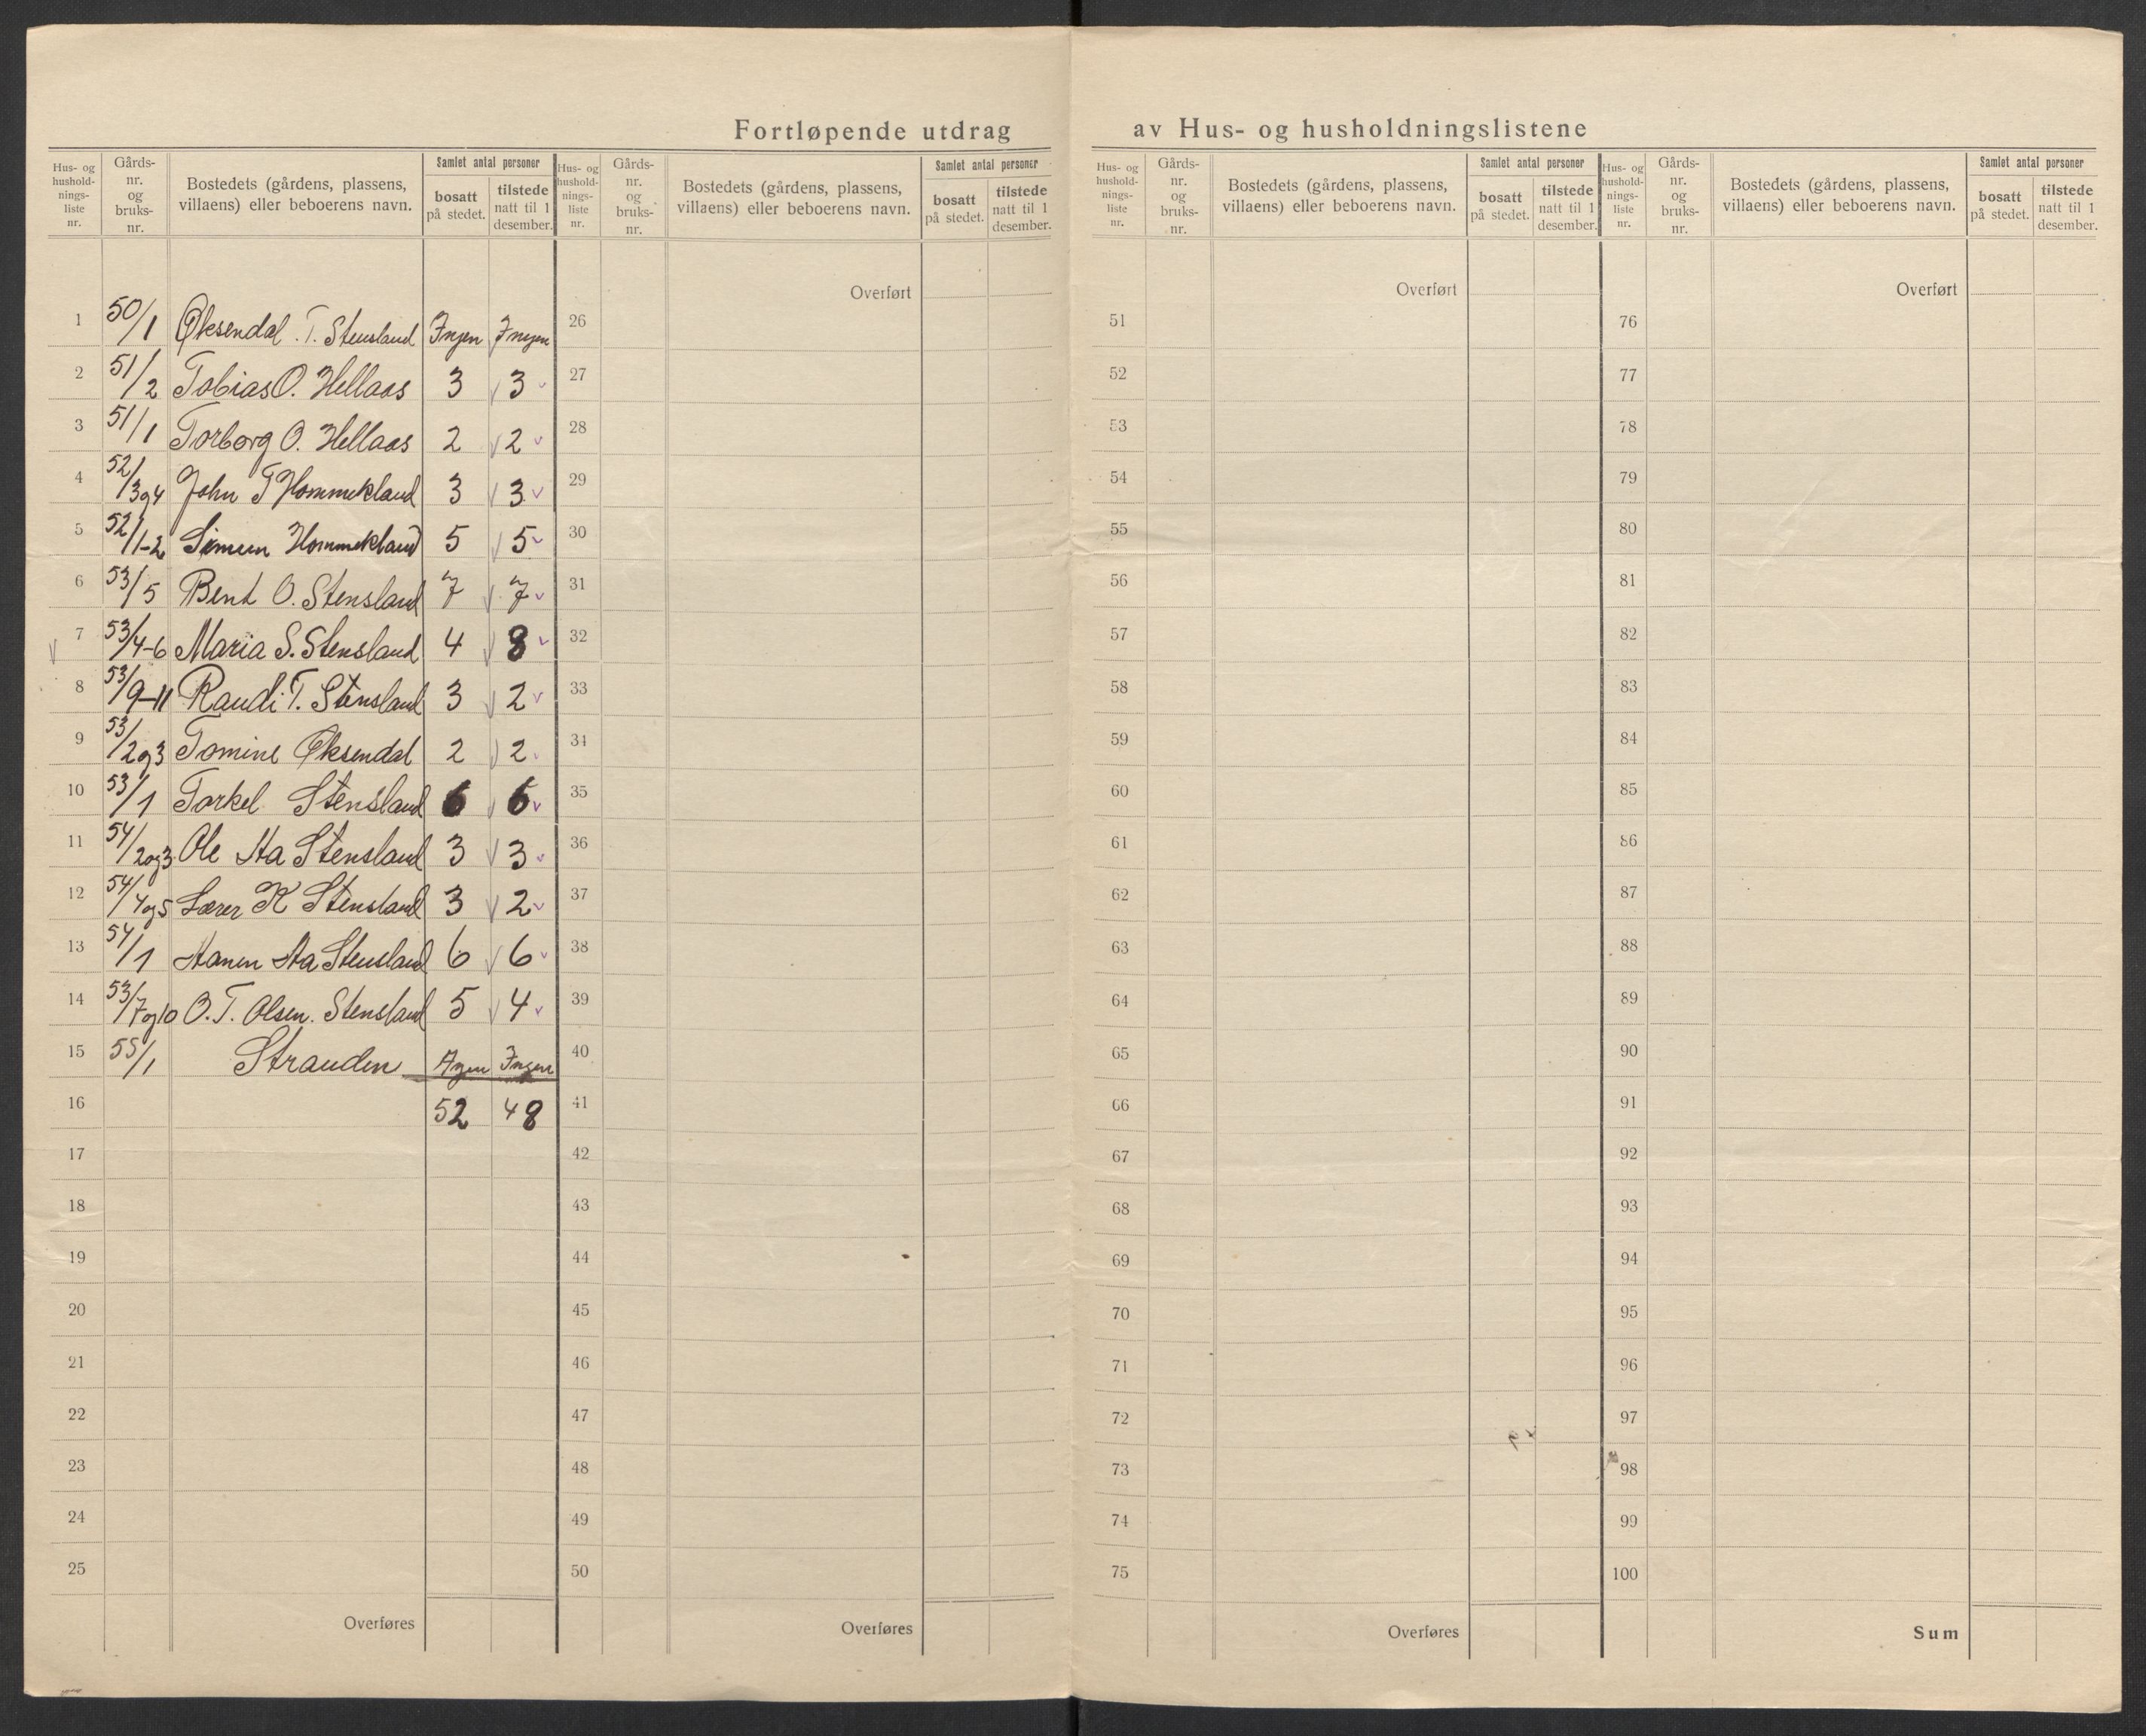 Fortløpende utdrag av Hus- og husholdningslistene
Hus- og hushold-nings-liste nr. Gårds-nr. og bruks-nr. Bostedets (gårdens, plassens, villaens) eller beboerens navn. Samlet antal personer bosatt på stedet. tilstede natt til 1 desember.
Hus- og hushold-nings-liste nr. Gårds-nr. og bruks-nr. Bostedets (gårdens, plassens, villaens) eller beboerens navn. Samlet antal personer bosatt på stedet. tilstede natt til 1 desember.
Hus- og hushold-nings-liste nr. Gårds-nr. og bruks-nr. Bostedets (gårdens, plassens, villaens) eller beboerens navn. Samlet antal personer bosatt på stedet. tilstede natt til 1 desember.
Hus- og hushold-nings-liste nr. Gårds-nr. og bruks-nr. Bostedets (gårdens, plassens, villaens) eller beboerens navn. Samlet antal personer bosatt på stedet. tilstede natt til 1 desember.
Overført Overført Overført
1 50/1 Øksendal . T. Stensland Ingen Ingen 26 51 76
2 51/2 Tobias O. Hellaas 3 3 27 52 77
3 51/1 Torborg O. Hellaas 2 2 28 53 78
4 52/3og4 John T Hommekland 3 3 29 54 79
5 52/1-2 Simeen Hommekland 5 5 30 55 80
6 53/5 Bent O. Stensland 7 7 31 56 81
7 53/4-6 Maria S. Stensland 4 8 32 57 82
8 53/9-11 Randi T. Stensland 3 2 33 58 83
9 53/2og3 Tomine Øksendal 2 2 34 59 84
10 53/1 Torkel Stensland 6 6 35 60 85
11 54/2og3 Ole Aa Stensland 3 3 36 61 86
12 54/4og5 Lærer K Stensland 3 2 37 62 87
13 54/1 Aanen Aa Stensland 6 6 38 63 88
14 53/7og10 O. T. Olsen. Stensland 5 4 39 64 89
15 55/1 Stranden Ingen Ingen 40 65 90
16 52 48 41 66 91
17 42 67 92
18 43 68 93
19 44 69 94
20 45 70 95
21 46 71 96
22 47 72 97
23 48 73 98
24 49 74 99
25 50 75 100
Overføres Overføres Overføres Sum